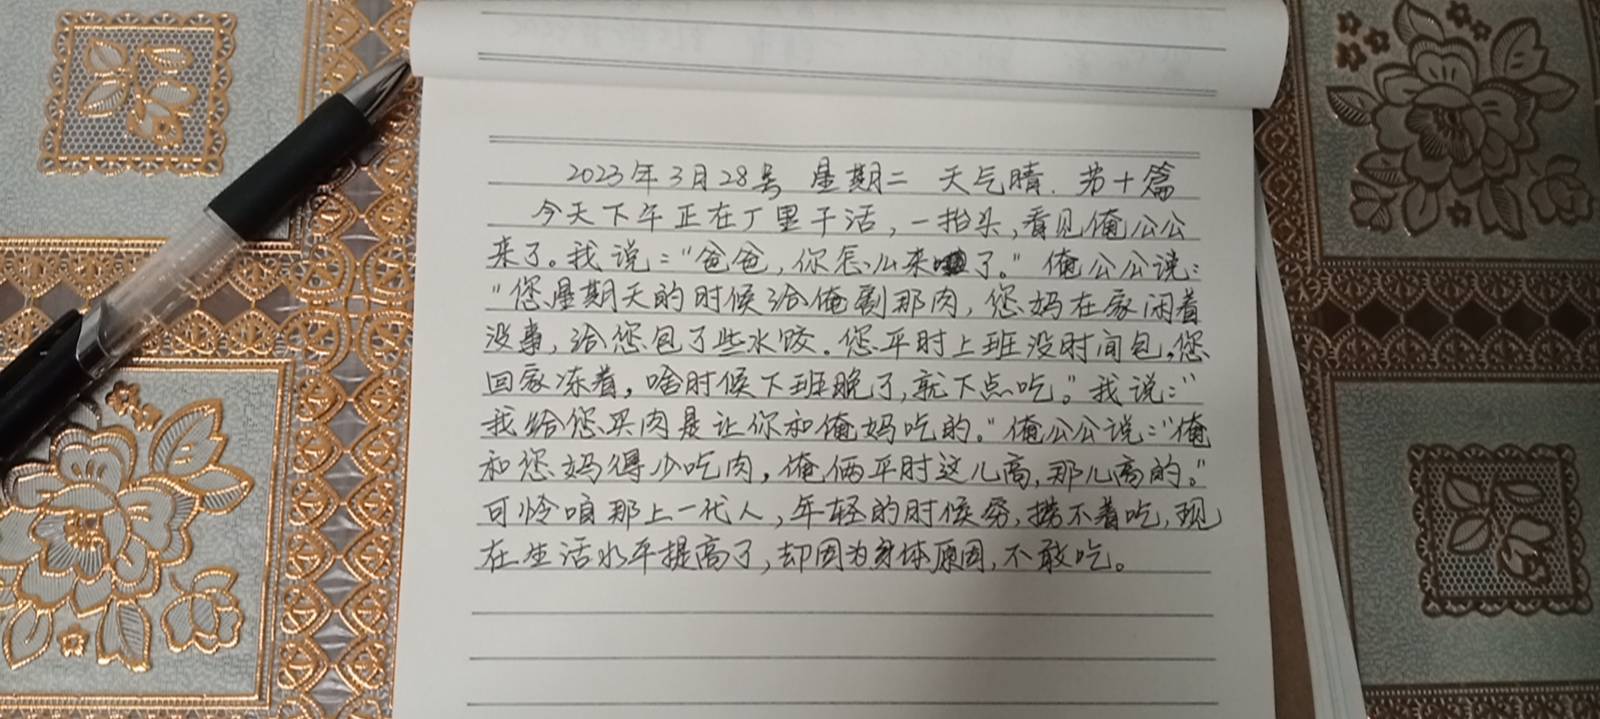 2023年3月28号 星期二 天气晴. 第十篇
今天下午正在厂里干活,一抬头,看见俺公公
来了。我说:"爸爸,你怎么来了。"俺公公说:
"您星期天的时候给俺割那肉,您妈在家闲着
没事,给您包了些水饺。您平时上班没时间包,您
回家冻着,啥时候下班晚了,就下点吃。"我说:"
我给您买肉是让你和俺妈吃的。"俺公公说:"俺
和您妈得少吃肉,俺俩平时这儿高,那儿高的。"
可怜咱那上一代人,年轻的时候穷,捞不着吃,现
在生活水平提高了,却因为身体原因,不敢吃。